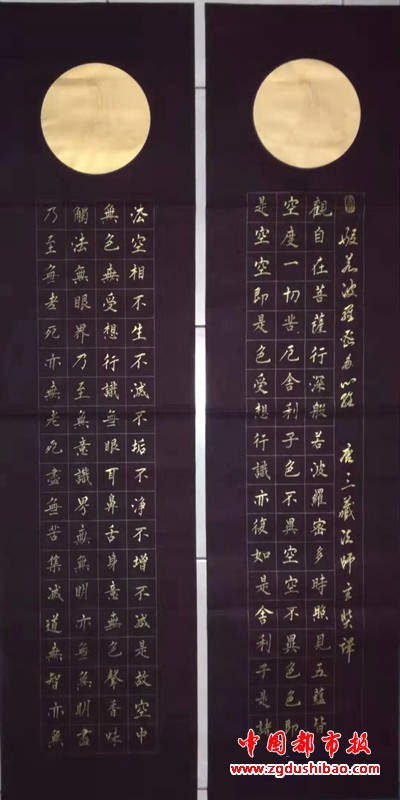 般若波羅蜜多心經 唐三藏法師玄奘譯
觀自在菩薩行深般若波羅密多時照見五蘊皆
空度一切苦厄舍利子色不異空空不異色色即
是空空即是色受想行識亦復如是舍利子是諸
法空相不生不滅不垢不淨不增不減是故空中
無色無受想行識無眼耳鼻舌身意無色聲香味
觸法無眼界乃至無意識界無無明亦無無明盡
乃至無老死亦無老死盡無苦集滅道無智亦無
中国都市报
www.zgdushibao.com